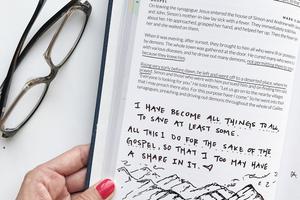 GOSPEL
On leaving the synagogue Jesus entered the house of Simon and Andrew with
and John. Simon's mother-in-law lay sick with a fever. They immediately told
about her. He approached, grasped her hand, and helped her up. Then the fever
and she waited on them.
When it was evening, after sunset, they brought to him all who were ill or possess
by demons. The whole town was gathered at the door. He cured many who were sick
with various diseases, and he drove out many demons, not permitting them to
because they knew him.
Rising very early before dawn, he left and went off to a deserted place, where he
prayed. Simon and those who were with him pursued him and on finding him said,
"Everyone is looking for you." He told them, "Let us go on to the nearby villages
that I may preach there also. For this purpose have I come." So he went into their
synagogues, preaching and driving out demons throughout the whole of Galilee.
I HAVE BECOME ALL THINGS TO ALL,
TO SAVE AT LEAST SOME.
ALL THIS I DO FOR THE SAKE OF THE
GOSPEL, SO THAT I TOO MAY HAVE
A SHARE IN IT.